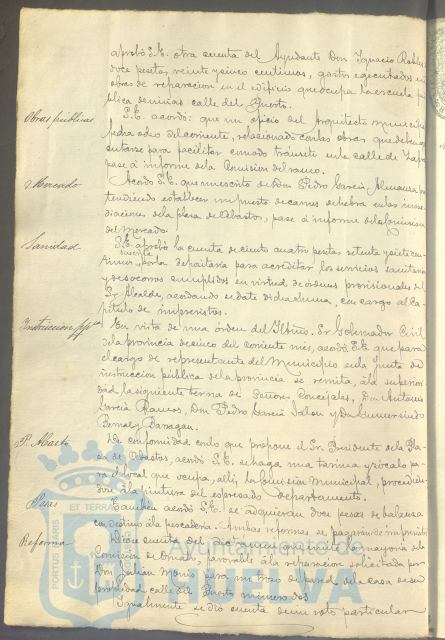 aprobó S.E. otra cuenta del Ayudante Don Ignacio
doce pesetas, veinte y cinco centimos, gastos ejecutados en
obras de reparacion en el edificio que ocupa la escuela pú-
blica de niñas calle del Puerto.
Obras públicas
S.E. acordó: que un oficio del Arquitecto municipal
fecha ocho del corriente, relacionado con las obras que deben
para facilitar cómodo tránsito en la calle de
pase á informe de la Comision del ramo.
Mercado
Acordó S.E. que un escrito de Don Pedro Garcia Almansa, pre-
tendiendo establecer un puesto de carnes de hebra en las inme-
diaciones de la plaza de Abastos, pase á informe de la Comision
del Mercado.
Sanidad
S.E. aprobó la cuenta de ciento cuatro pesetas setenta y siete cen-
timos, por la depositaria para acreditar los servicios sanitarios
y de socorros cumplidos en virtud de órdenes provisionales del
Sr. Alcalde, acordando se date dicha suma, con cargo al ca-
pítulo de imprevistos.
Instruccion pp.ca
En vista de una órden del Iltmo. Sr. Gobernador Civil
de la provincia de cinco del corriente mes, acordó S.E. que para
el cargo de representante del Municipio en la Junta de
instruccion pública de la provincia se remita, á la superiori-
dad, la siguiente terna de Señores Concejales, Don Antonio
Garcia Ramos, Don Pedro Garcia Jalon y Don Gumersindo
Bernal y Barragan.
P. Abasto
De conformidad con lo que propone el Sr. Presidente de la Pla-
za de Abastos, acordó S.E. se haga una tarima y zócalo pa-
ra el local que ocupa, alli, la Comision Municipal, procedien-
dose á la pintura del espresado departamento.
Pesas
Tambien acordó S.E. se adquieran doce pesas de balanza
con destino á la pescaderia. Ambas reformas se pagarán de imprevistos.
Reforma
Dióse cuenta del dictamen que emite la mayoria de la
Comision de Ornato, favorable á la reparacion solicitada por
Don Julian para un trozo de pared de la casa de su
propiedad calle del Puerto número dos.
Igualmente se dió cuenta de un voto particular
ET TERRA
PORTUS MARIS
Ayuntamiento de
HUELVA